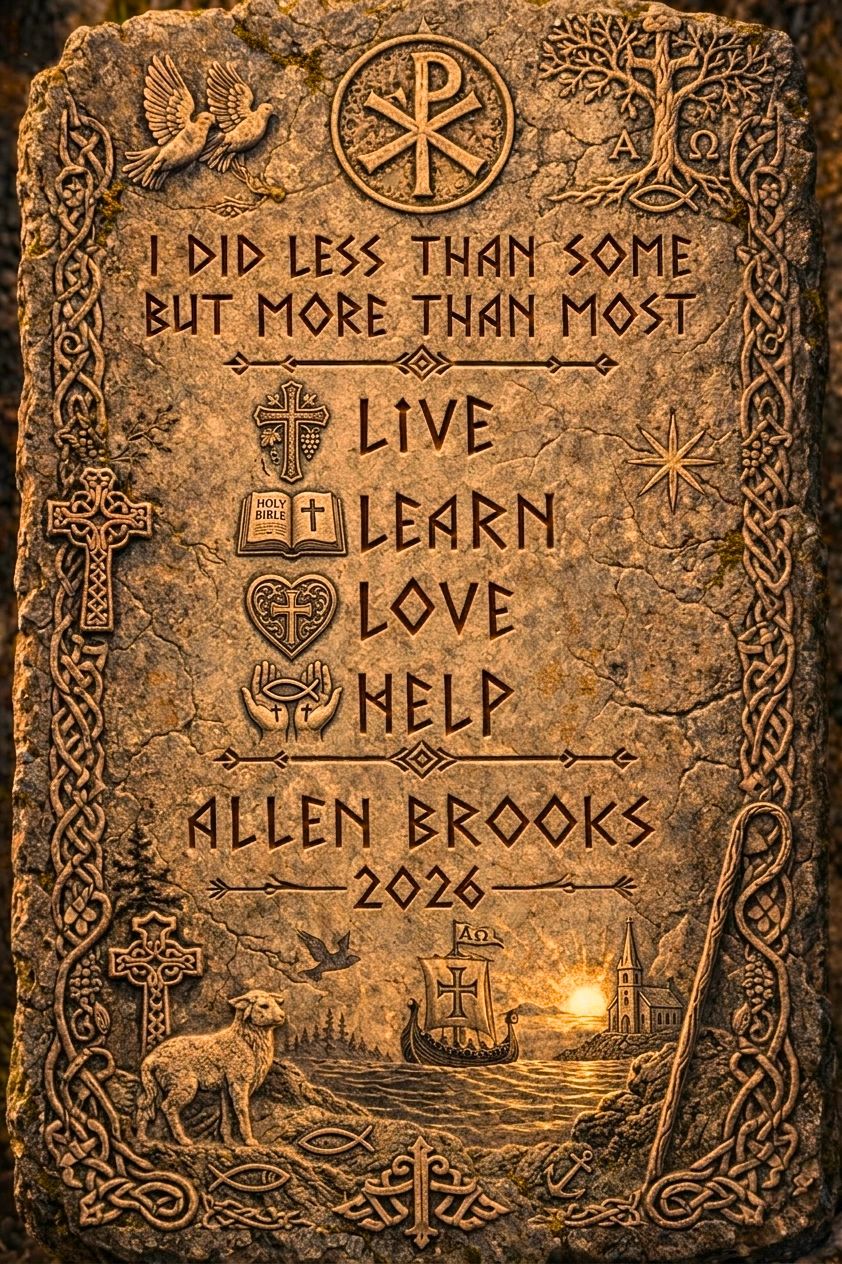 Α Ω
I DID LESS THAN SOME
BUT MORE THAN MOST
LIVE
HOLY
BIBLE
LEARN
LOVE
HELP
ALLEN BROOKS
2026
ΑΩ